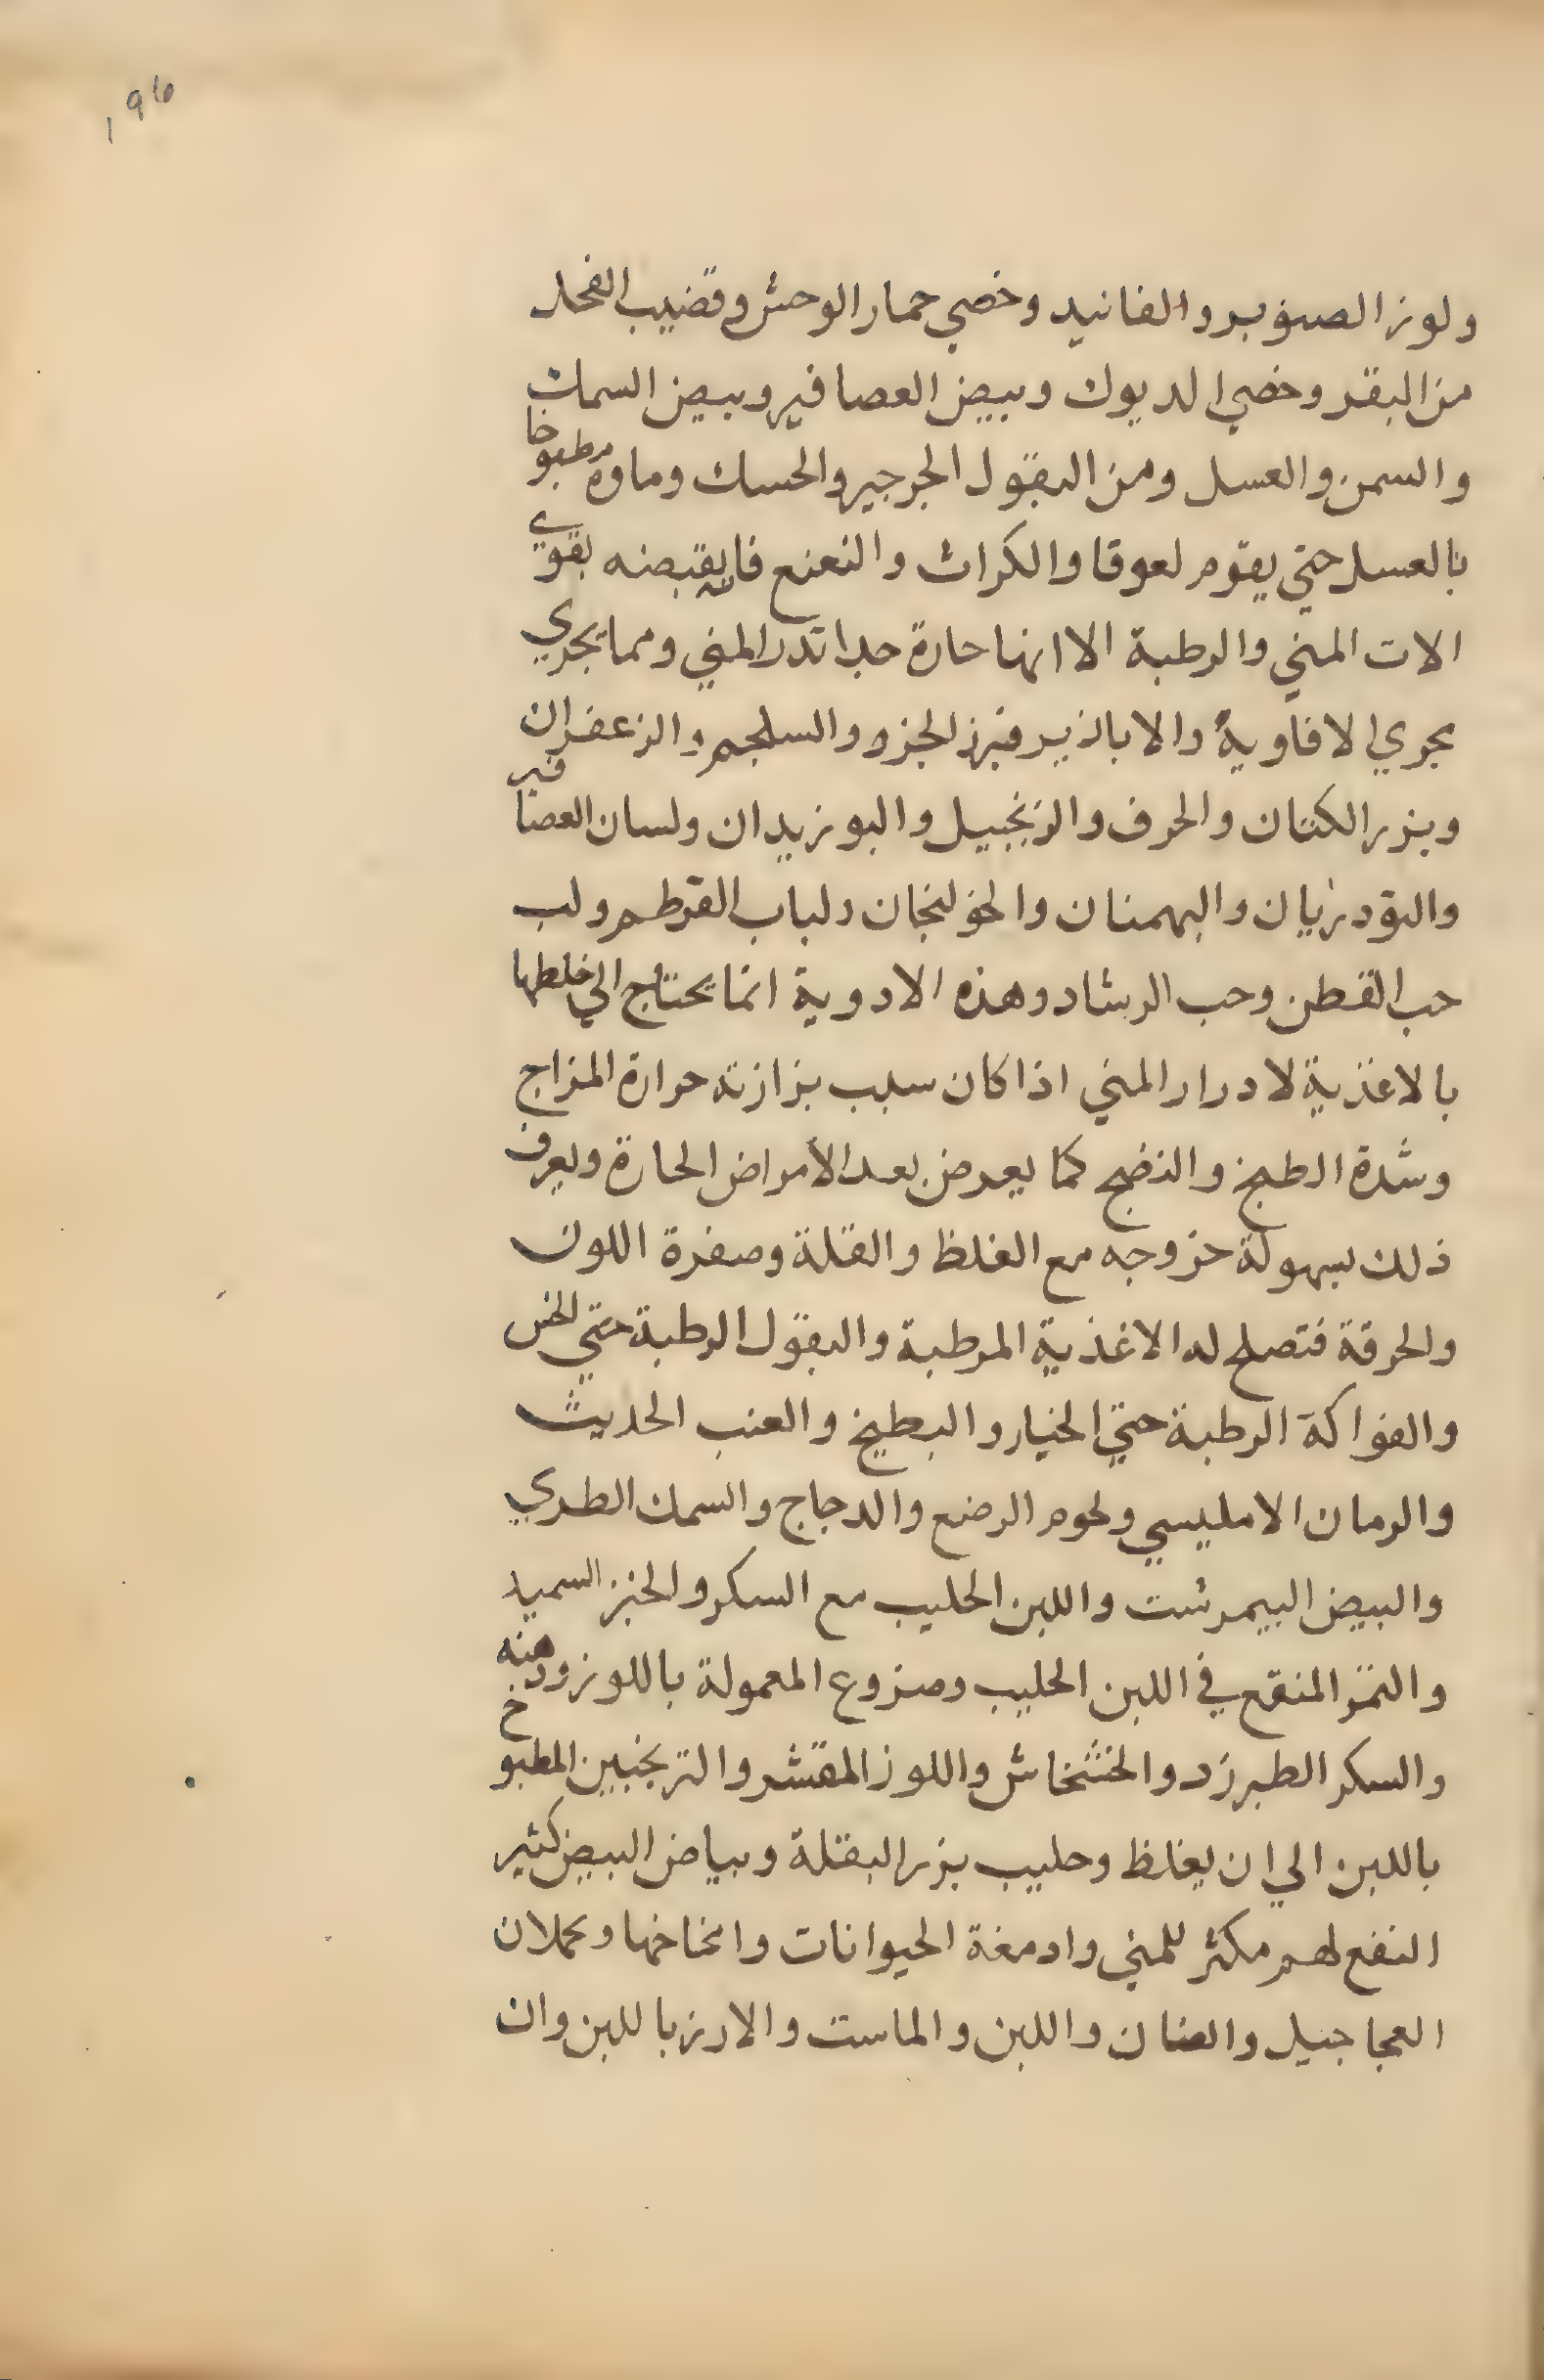 196
ولوز الصنوبر والفانيد وخصي حمار الوحش وقضيب الفحل
من البقر وخصي الديوك وبيض العصافير وبيض السمك
والسمن والعسل ومن البقول الجرجير والحسك وماوه مطبوخا
بالعسل حتي يقوم لعوقا والكراث والنعنع فانه بقبضه يقوي
الات المني والرطبة الا انها حارة جدا تدر المني ومما يجري
مجري الافاوية والابازير فبزر الجزر والسلجم والزعفران
وبزر الكتان والحرف والزنجبيل والبوزيدان ولسان العصافير
والتودريان والبهمنان والخولنجان ولباب القرطم ولب
حب القطن وحب الرشاد وهذه الادوية انما يحتاج الي خلطها
بالاغذية لادرار المني اذا كان سبب بزازته حرارة المزاج
وشدة الطبخ والنضج كما يعرض بعد الأمراض الحارة ويعرف
ذلك بسهولة خروجه مع الغلظ والقلة وصفرة اللون
والحرقة فتصلح له الاغذية المرطبة والبقول الرطبة حتي الخس
والفواكة الرطبة حتي الخيار والبطيخ والعنب الحديث
والرمان الامليسي ولحوم الرضع والدجاج والسمك الطري
والبيض البيمرشت واللبن الحليب مع السكر والخبز السميد
والتمر المنقع في اللبن الحليب وصزوع المعمولة باللوز ودهنه
والسكر الطبرزد والخشخاش واللوز المقشر والترنجبين المطبوخ
باللبن الي ان يغلظ وحليب بزر البقلة وبياض البيض كثير
النفع لهم مكثر للمني وادمغة الحيوانات وامخاخها وبحملان
العجاجيل والضان واللبن والماست والارز باللبن وان